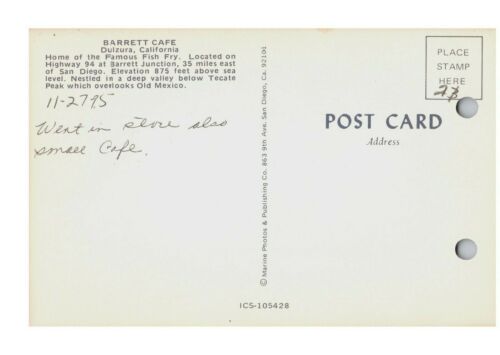 BARRETT CAFE
Dulzura, California
Home of the Famous Fish Fry. Located on
Highway 94 at Barrett Junction, 35 miles east
of San Diego. Elevation 875 feet above sea
level. Nestled in a deep valley below Tecate
Peak which overlooks Old Mexico.
11-2795
Went in store also
small Cafe.
© Marine Photos & Publishing Co. 863 9th Ave. San Diego, Ca. 92101
PLACE
STAMP
HERE
POST CARD
Address
ICS-105428